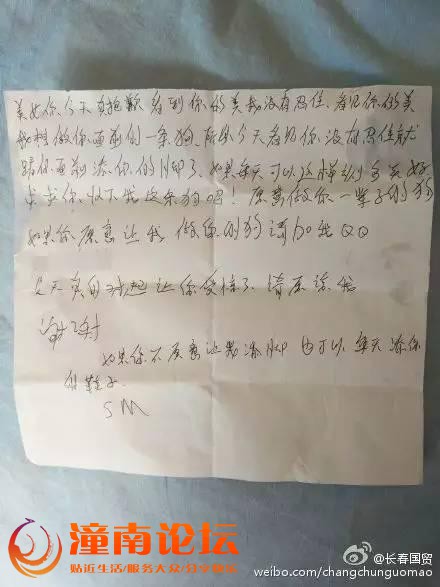 美女你今天真抱歉看到你的美我没有忍住、看见你的美
我想做你面前的一条狗、所以今天看见你没有忍住就
跪你面前添你的脚了、如果每天可以这样多好
求求你收下我这条狗吧!愿意做你一辈子的狗
如果你愿意让我做你的狗请加我QQ
今天真的对起让你受惊了、请原谅我
谢谢
如果你不愿意让我添脚也可以每天添你
的鞋子
SM
潼南论坛
贴近生活/服务大众/分享快乐
@长春国贸
weibo.com/changchunguomao